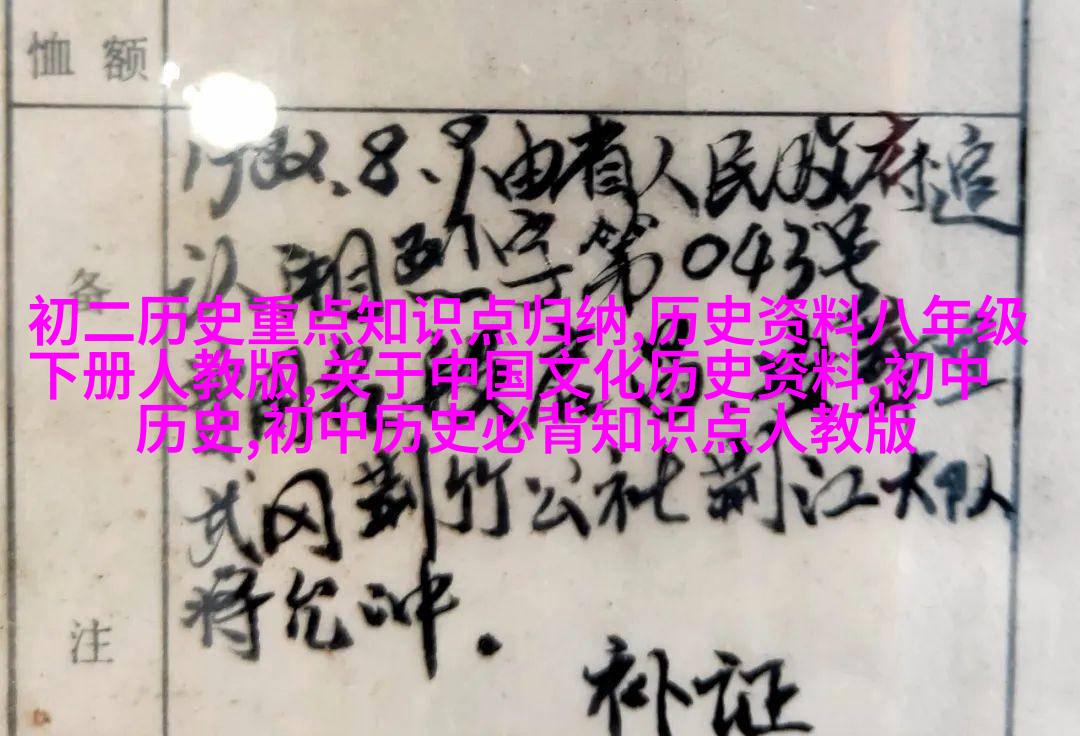 恤额
1982.8.9由省人民政府追
认湘烈字第043号
备
初二历史重点知识点归纳,历史资料八年级
下册人教版,关于中国文化历史资料,初中
历史,初中历史必背知识点人教版
武冈荆竹公社荆江大队
蒋允冲.
注
补证